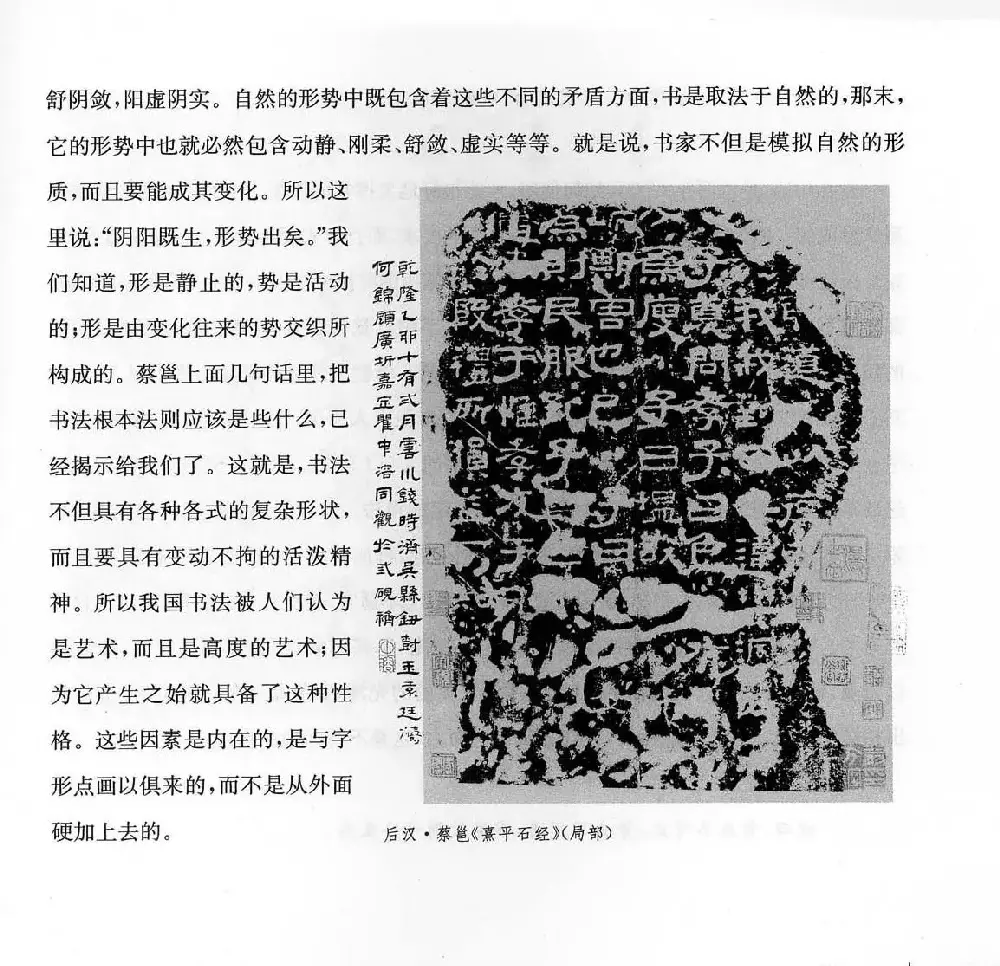 舒阴敛,阳虚阴实。自然的形势中既包含着这些不同的矛盾方面,书是取法于自然的,那末,
它的形势中也就必然包含动静、刚柔、舒敛、虚实等等。就是说,书家不但是模拟自然的形
质,而且要能成其变化。所以这
里说:“阴阳既生,形势出矣。”我
们知道,形是静止的,势是活动
的;形是由变化往来的势交织所
构成的。蔡邕上面几句话里,把
书法根本法则应该是些什么,已
经揭示给我们了。这就是,书法
不但具有各种各式的复杂形状,
而且要具有变动不拘的活泼精
神。所以我国书法被人们认为
是艺术,而且是高度的艺术;因
为它产生之始就具备了这种性
格。这些因素是内在的,是与字
形点画以俱来的,而不是从外面
硬加上去的。
乾隆乙卯十有弍月雲川錢時濟吳縣鈕對王
何錦顧廣圻嘉定瞿中溶同觀於弍硯
我我對
孝子曰色
子曰溫故
害也已子曰
為則民服
孝于惟孝
后汉·蔡邕《熹平石经》(局部)